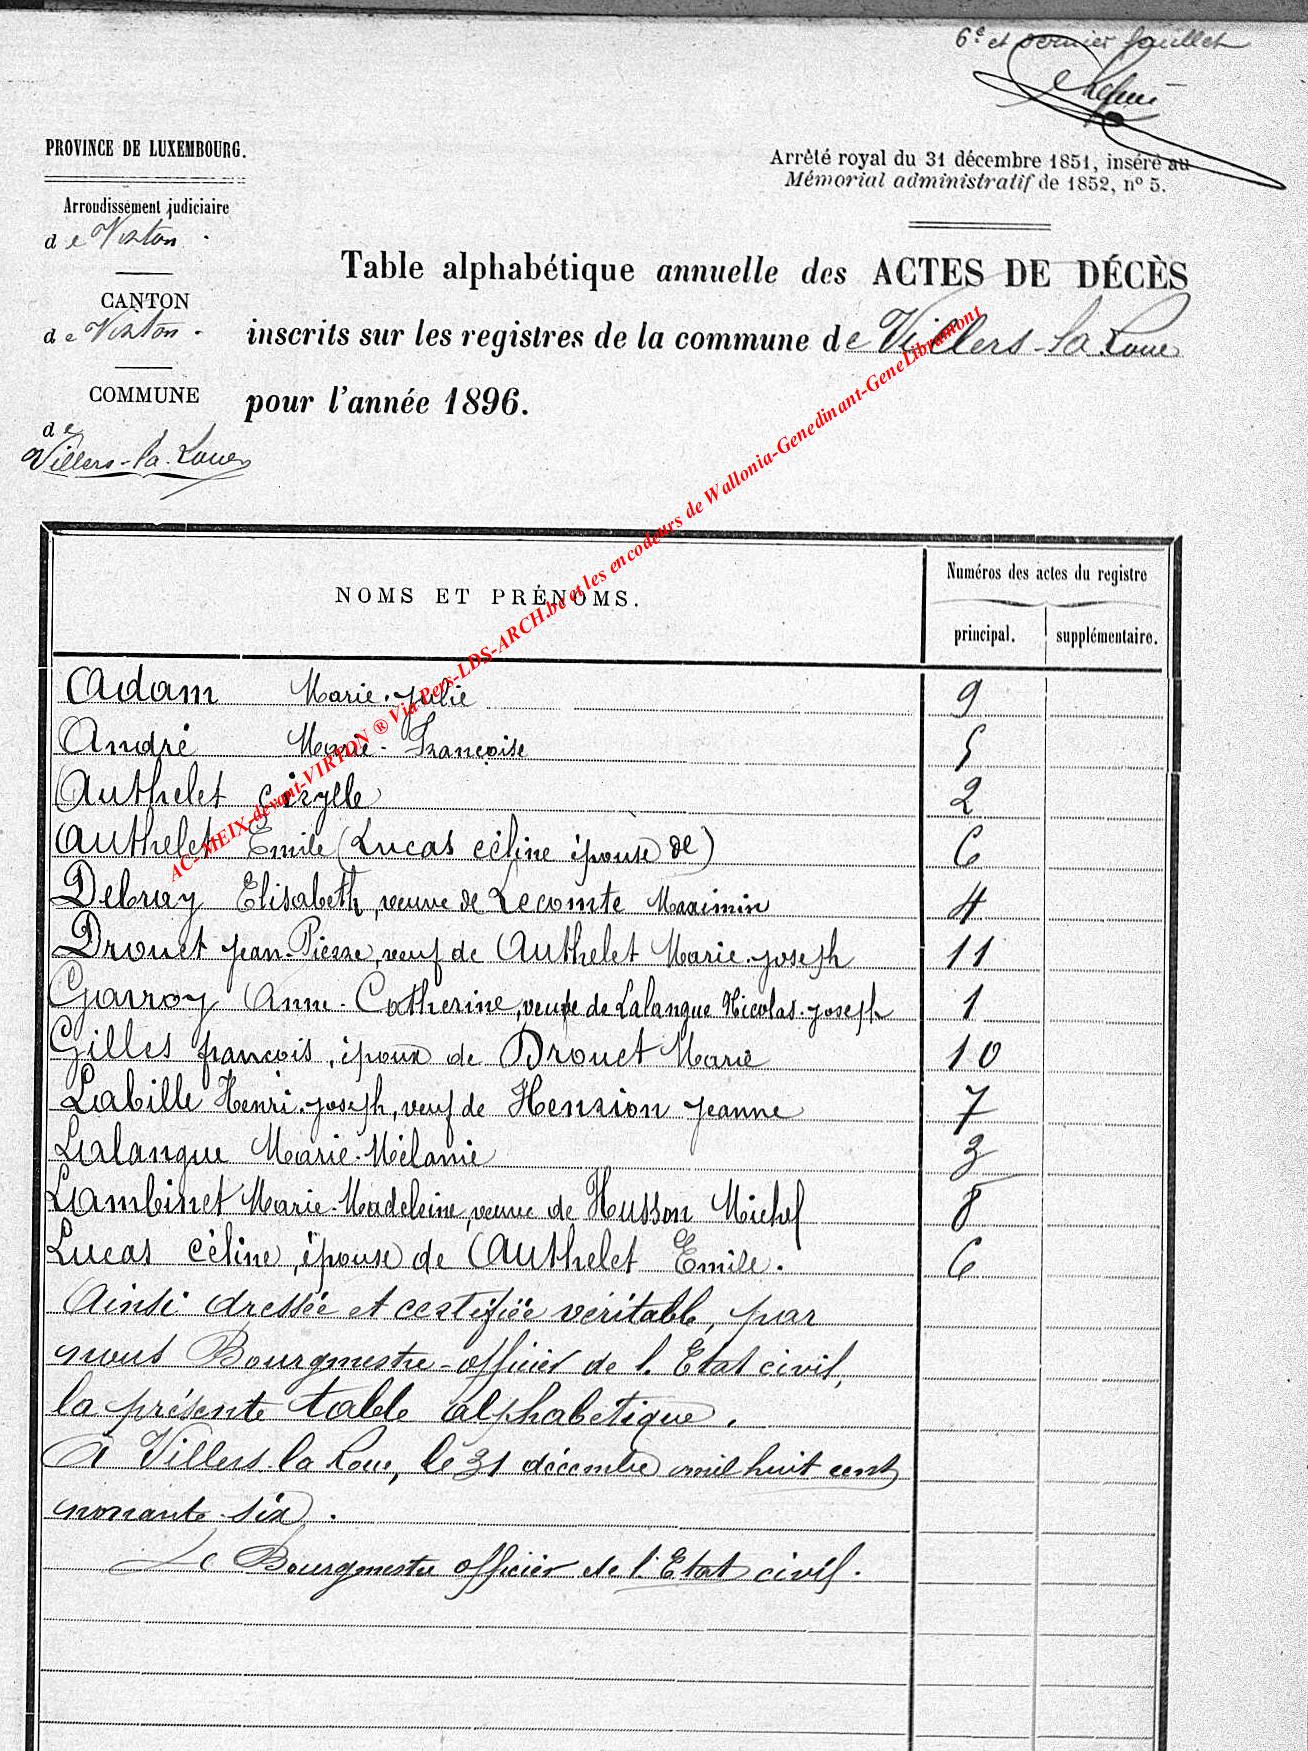 6e et dernier feuillet
PROVINCE DE LUXEMBOURG.
Arrêté royal du 31 décembre 1851, inséré au
Mémorial administratif de 1852, n° 5.
Arrondissement judiciaire
de Virton.
CANTON
de Virton.
COMMUNE
de
Villers-la-Loue
Table alphabétique annuelle des ACTES DE DÉCÈS
inscrits sur les registres de la commune de Villers-la-Loue
pour l'année 1896.
AC-MEIX-devant-VIRTON ® Via Pers-LDS-ARCH.be et les encodeurs de Wallonia-Genedinant-GeneLibramont
NOMS ET PRÉNOMS. Numéros des actes du registre
principal. supplémentaire.
Adam Marie-Julie 9
André Marie-Françoise 5
Authelet Cirylle 2
Authelet Emile (Lucas Céline épouse de) 6
Debray Elisabeth, veuve de Lecomte Maximin 4
Drouet Jean-Pierre, veuf de Authelet Marie-Joseph 11
Garroy Anne-Catherine, veuve de Lalangue Nicolas-Joseph 1
Gilles françois, époux de Drouet Marie 10
Labille Henri-Joseph, veuf de Henrion Jeanne 7
Lalangue Marie-Mélanie 3
Lambinet Marie-Madeleine, veuve de Husson Michel 8
Lucas Céline, épouse de Authelet Emile. 6
Ainsi dressée et certifiée véritable, par
nous Bourgmestre-officier de l'Etat civil,
la présente table alphabétique.
A Villers-la-Loue, le 31 décembre mil huit cent
nonante-six.
Le Bourgmestre officier de l'Etat civil.